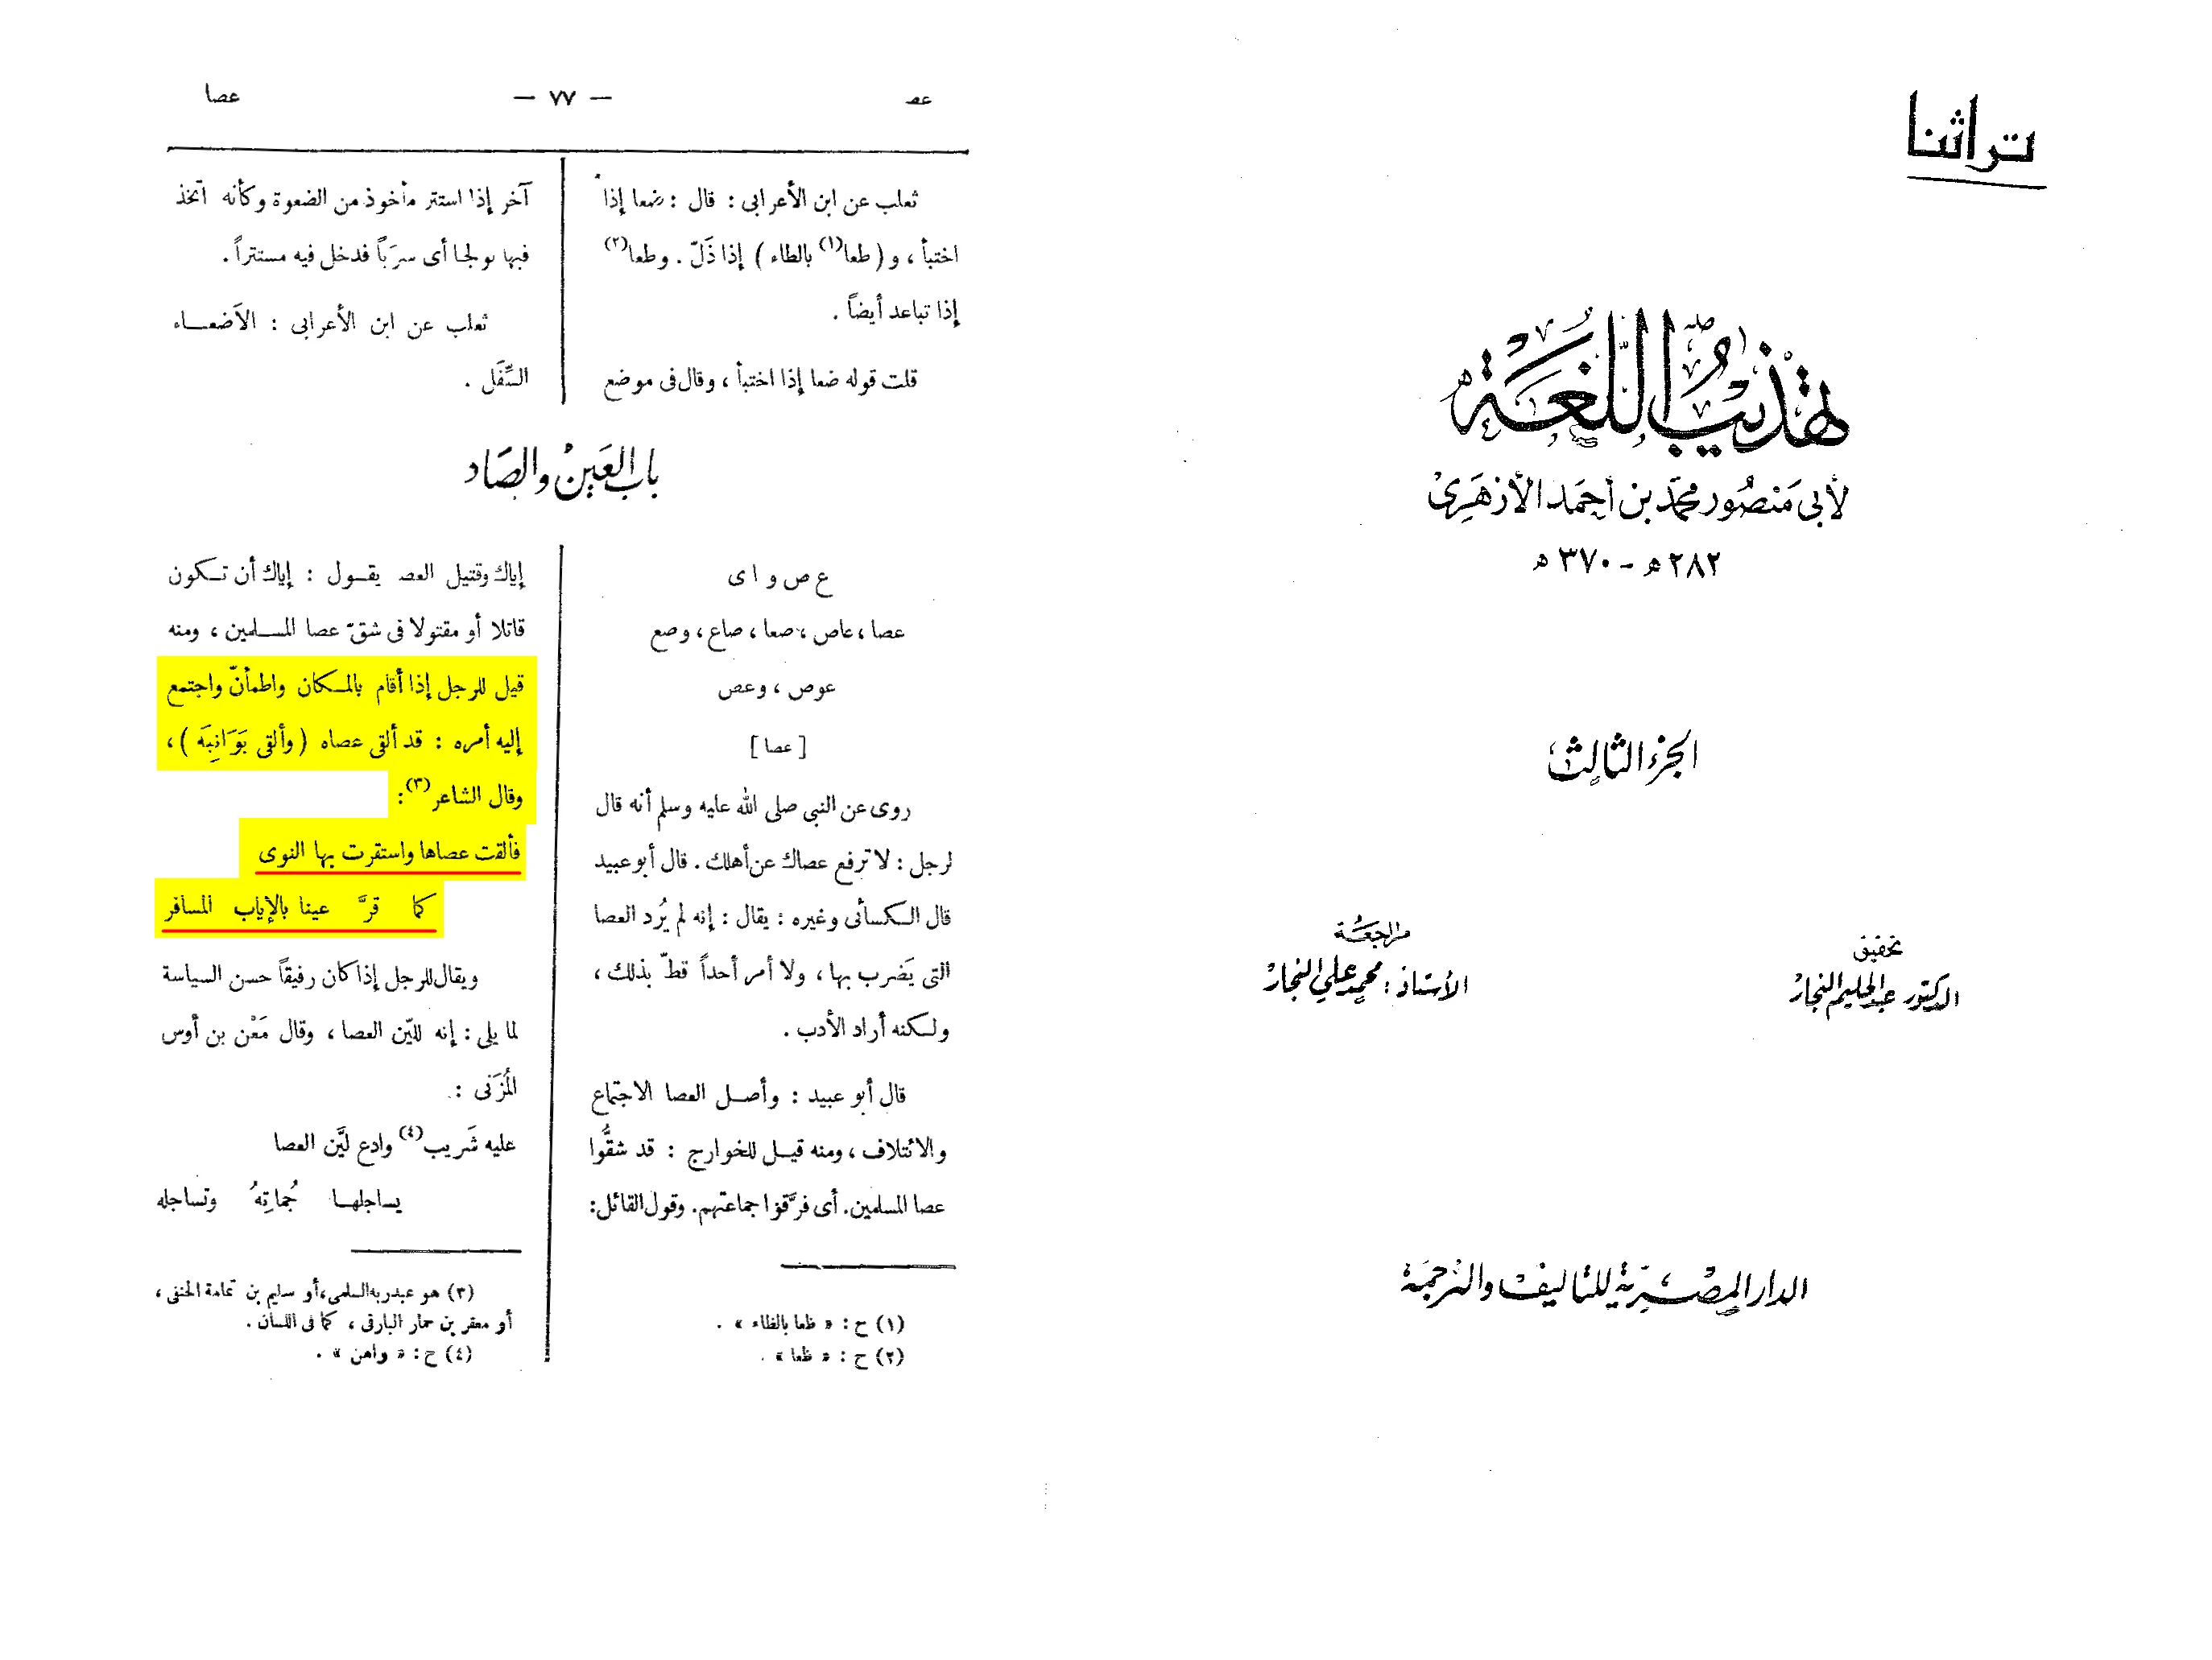 تراثنا
تهذيب اللغة
لأبى منصور محمد بن أحمد الأزهرى
٢٨٢ هـ - ٣٧٠ هـ
الجزء الثالث
تحقيق
الدكتور عبد الحليم النجار
مراجعة
الأستاذ : محمد علي النجار
الدار المصرية للتأليف والترجمة
عصـ — ٧٧ — عصا
ثعلب عن ابن الأعرابى : قال : ضعا إذا
اختبأ ، و ( طعا(١) بالطاء ) إذا ذَلّ . وطعا(٢)
إذا تباعد أيضاً .
قلت قوله ضعا إذا اختبأ ، وقال فى موضع
آخر إذا استتر مأخوذ من الضعوة وكأنه اتخذ
فيها تولجا أى سرَباً فدخل فيه مستتراً .
ثعلب عن ابن الأعرابى : الأضعاء
السِّفَل .
باب العَين والصَاد
ع ص و ا ى
عصا ، عاص ، صعا ، صاع ، وصع
عوص ، وعص
[ عصا ]
روى عن النبى صلى الله عليه وسلم أنه قال
لرجل : لا ترفع عصاك عن أهلك . قال أبو عبيد
قال الكسائى وغيره : يقال : إنه لم يُرد العصا
التى يَضرب بها ، ولا أمر أحداً قطّ بذلك ،
ولكنه أراد الأدب .
قال أبو عبيد : وأصل العصا الاجتماع
والائتلاف ، ومنه قيل للخوارج : قد شقُّوا
عصا المسلمين. أى فرَّقوا جماعتهم. وقول القائل:
إياك وقتيل العصـ يقول : إياك أن تكون
قاتلا أو مقتولا فى شقّ عصا المسلمين ، ومنه
قيل للرجل إذا أقام بالمكان واطمأنّ واجتمع
إليه أمره : قد ألقى عصاه ( وألقى بَوَانِيَه ) ،
وقال الشاعر(٣):
فألقت عصاها واستقرت بها النوى
كما قرَّ عينا بالإياب المسافر
ويقال للرجل إذا كان رفيقاً حسن السياسة
لما يلى : إنه لليّن العصا ، وقال مَعْن بن أوس
المُزَنى :
عليه شَريب(٤) وادع ليَّن العصا
يساجلها جُماتِهُ وتساجله
(١) ح : « ظعا بالظاء » .
(٢) ح : « ظعا » .
(٣) هو عبدربه السلمى، أو سليم بن ثمامة الحنفى ،
أو معقر بن حمار البارقى ، كما فى اللسان .
(٤) ح : « واهن » .